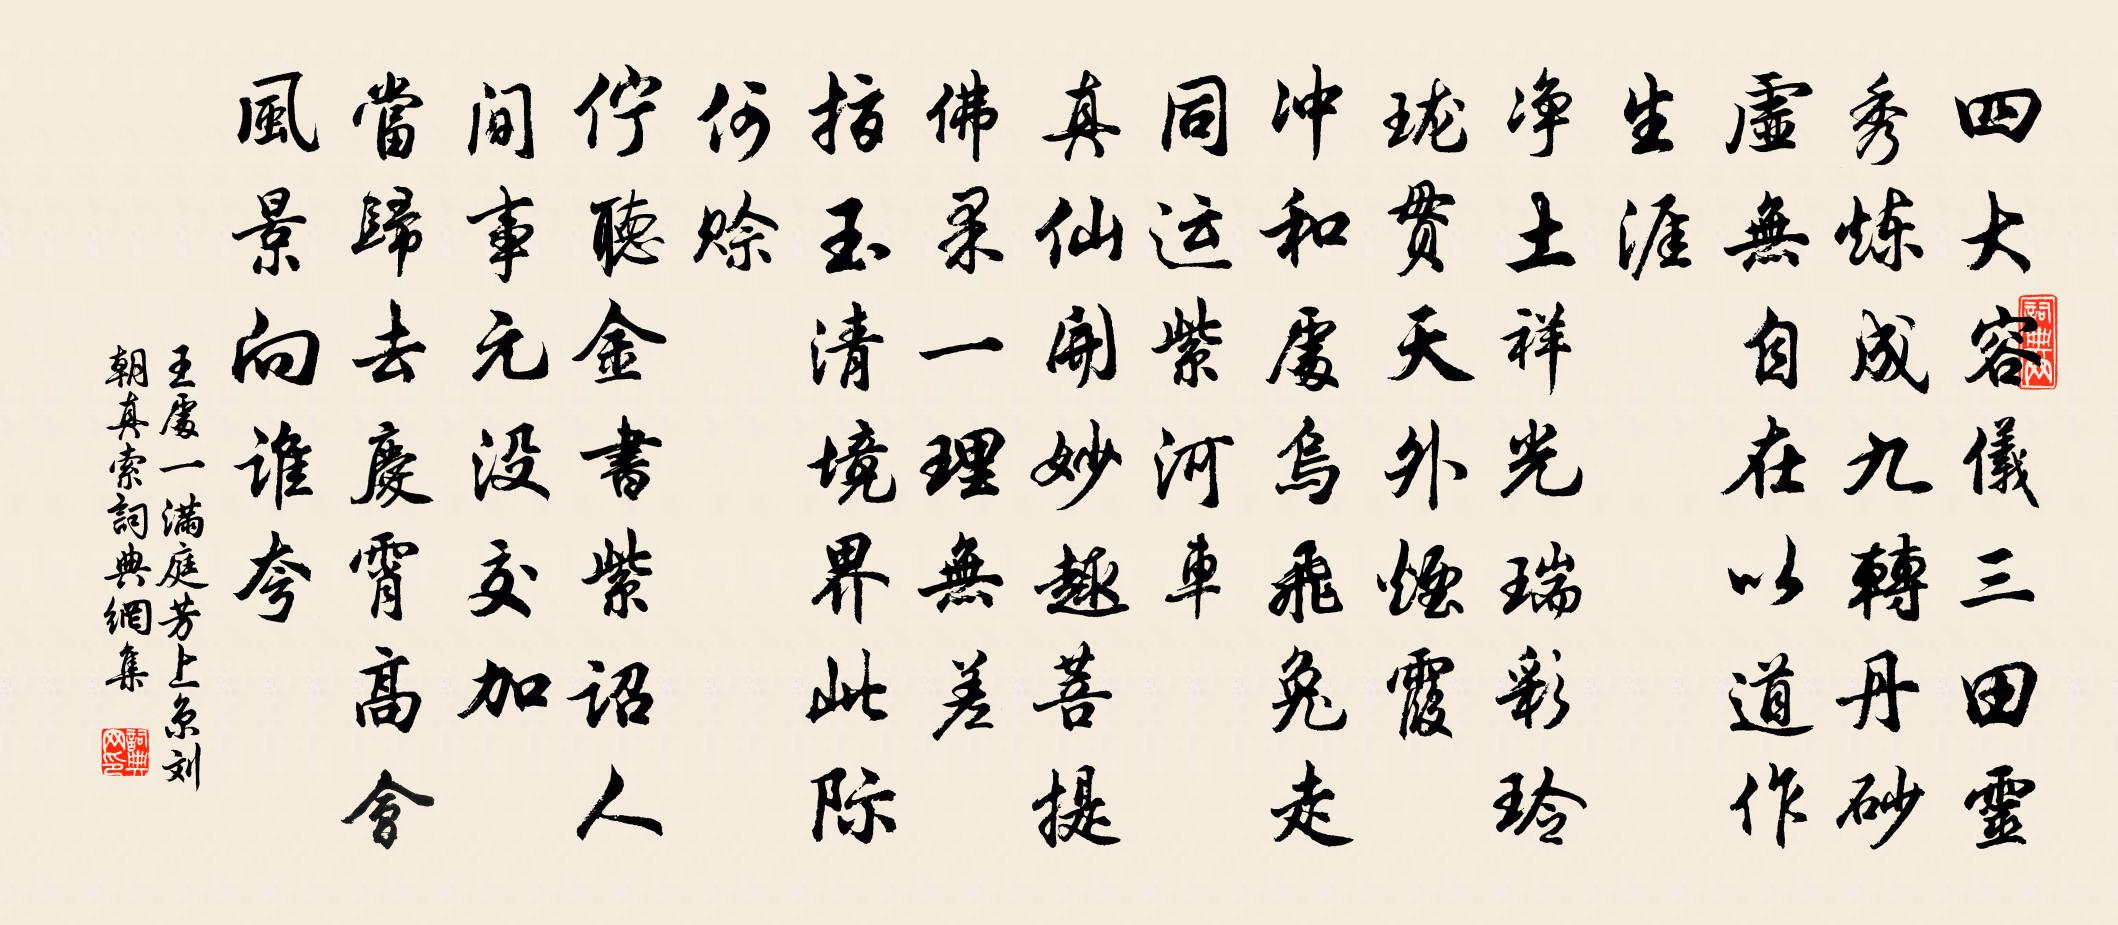 詞典网
四大容儀三田靈
秀炼成九轉丹砂
虛無自在以道作
生涯
净土祥光瑞彩玲
珑贯天外煙霞
冲和處烏飛兔走
同运紫河車
真仙開妙趣菩提
佛果一理無差
指玉清境界此际
何赊
佇聽金書紫詔人
間事元没交加
當歸去慶霄高會
風景向誰夸
王處一满庭芳上京刘
朝真索詞典網集
詞典网印